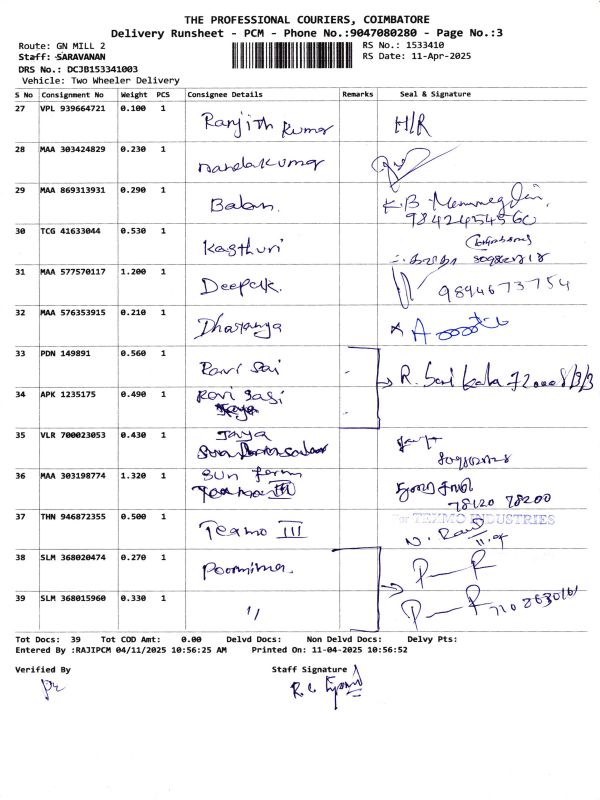 THE PROFESSIONAL COURIERS, COIMBATORE
Delivery Runsheet - PCM - Phone No.:9047080280 - Page No.:3
Route: GN MILL 2 RS No.: 1533410
Staff: SARAVANAN RS Date: 11-Apr-2025
DRS No.: DCJB153341003
Vehicle: Two Wheeler Delivery
S No Consignment No Weight PCS Consignee Details Remarks Seal & Signature
27 VPL 939664721 0.100 1 Ranjith Kumar H/R
28 MAA 303424829 0.230 1 Nandakumar
29 MAA 869313931 0.290 1 Balan. K.B
9842454560
30 TCG 41633044 0.530 1 Kasthuri
31 MAA 577570117 1.200 1 Deepak. 9894673754
32 MAA 576353915 0.210 1 Dharanya
33 PDN 149891 0.560 1 Ravi Sai
34 APK 1235175 0.490 1 Ravi Sasi
35 VLR 700023053 0.430 1 Jaya
36 MAA 303198774 1.320 1 Sun farm
78120 78200
37 THN 946872355 0.500 1 Teamo III for TEXMO INDUSTRIES
38 SLM 368020474 0.270 1 Poornima.
39 SLM 368015960 0.330 1 "
Tot Docs: 39 Tot COD Amt: 0.00 Delvd Docs: Non Delvd Docs: Delvy Pts:
Entered By :RAJIPCM 04/11/2025 10:56:25 AM Printed On: 11-04-2025 10:56:52
Verified By Staff Signature